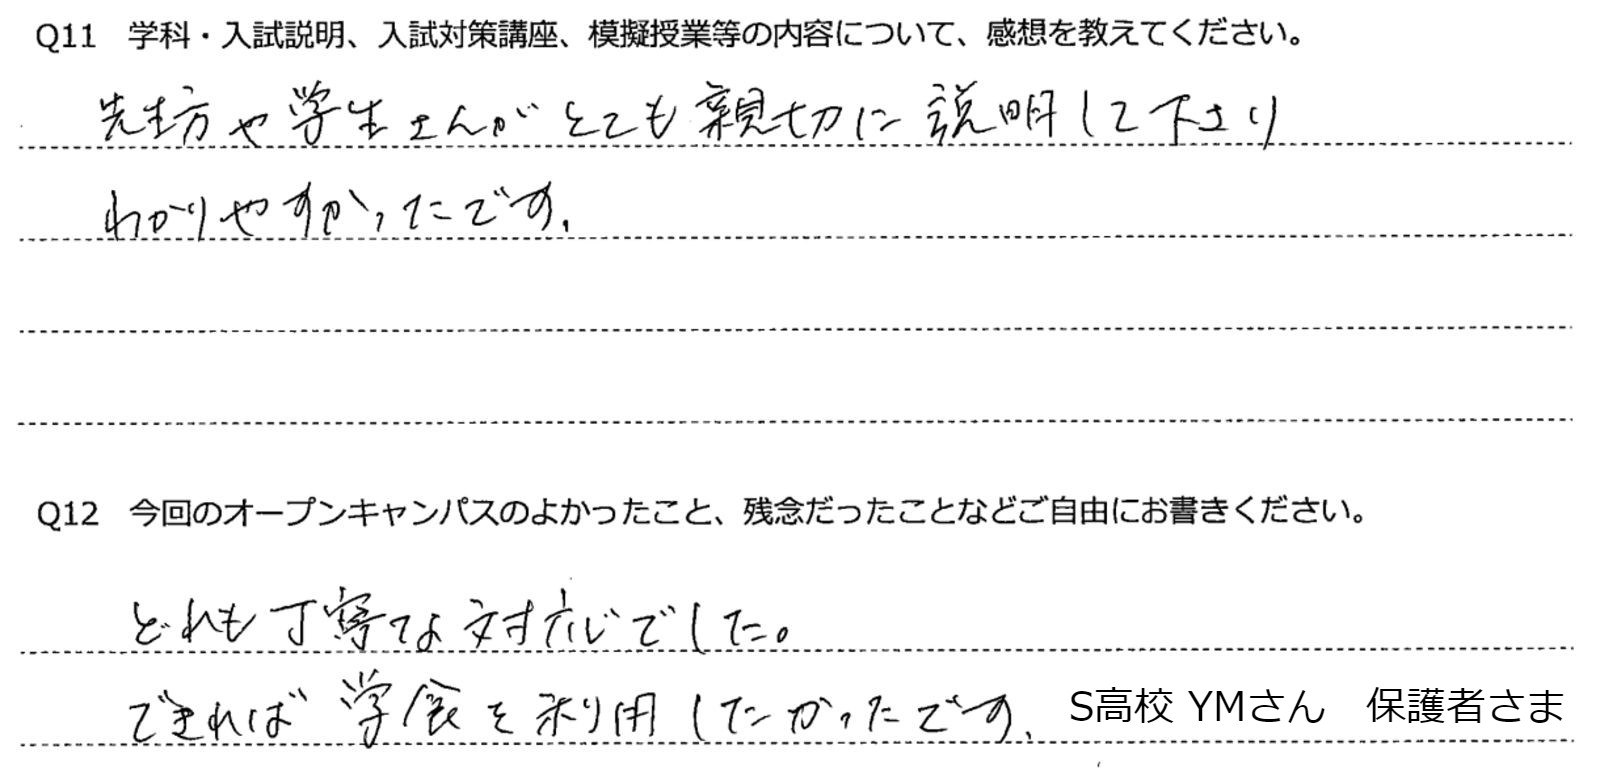 Q11 学科・入試説明、入試対策講座、模擬授業等の内容について、感想を教えてください。
先生方や学生さんがとても親切に説明して下さり
わかりやすかったです。
Q12 今回のオープンキャンパスのよかったこと、残念だったことなどご自由にお書きください。
どれも丁寧な対応でした。
できれば学食を利用したかったです。
S高校 YMさん 保護者さま